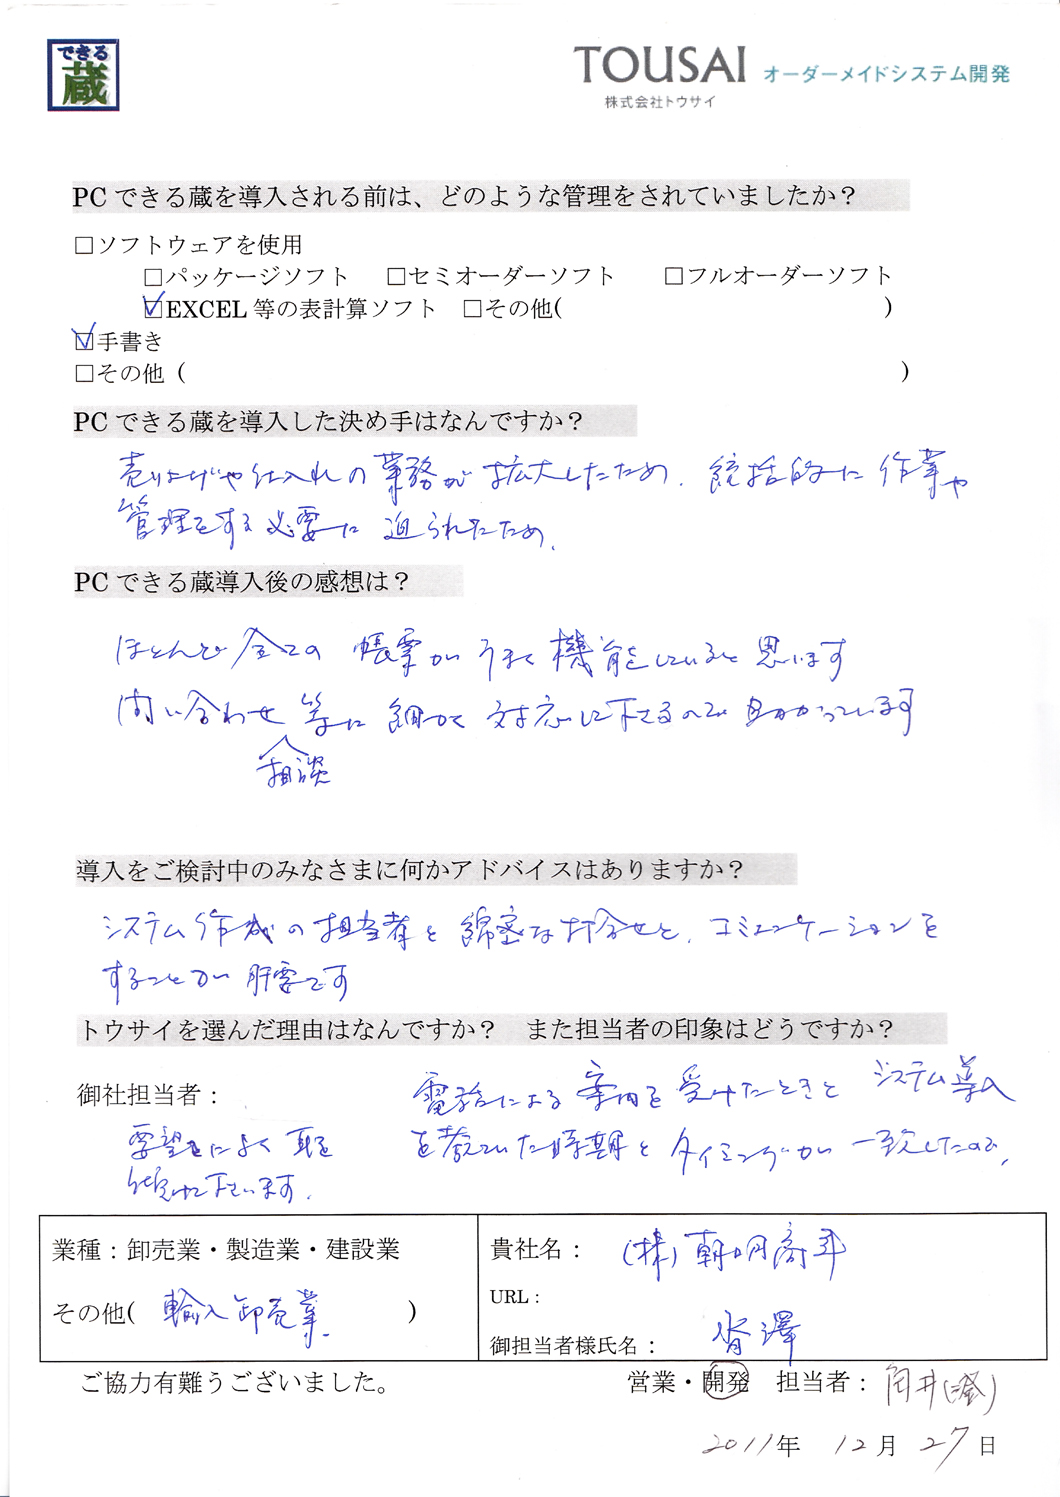 できる
蔵
TOUSAI オーダーメイドシステム開発
株式会社トウサイ
PCできる蔵を導入される前は、どのような管理をされていましたか？
□ソフトウェアを使用
□パッケージソフト □セミオーダーソフト □フルオーダーソフト
☑EXCEL等の表計算ソフト □その他( )
☑手書き
□その他 ( )
PCできる蔵を導入した決め手はなんですか？
売り上げや仕入れの業務が拡大したため、統括的に作業や
管理をする必要に迫られたため、
PCできる蔵導入後の感想は？
ほとんど全ての帳票がうまく機能していると思います
問い合わせ等に細かく対応して下さるので助かっています
相談
導入をご検討中のみなさまに何かアドバイスはありますか？
システム作成の担当者と綿密な打合せと、コミュニケーションを
することが肝要です
トウサイを選んだ理由はなんですか？ また担当者の印象はどうですか？
御社担当者：
要望をによく耳を
傾けて下さいます。
電話による案内を受けたときと システム導入
を考えていた時期とタイミングが一致したので、
業種：卸売業・製造業・建設業
その他( 輸入卸売業 )
貴社名： (株)朝明商事
URL：
御担当者様氏名：
ご協力有難うございました。
営業・開発 担当者： 角井
2011年 12月 27日